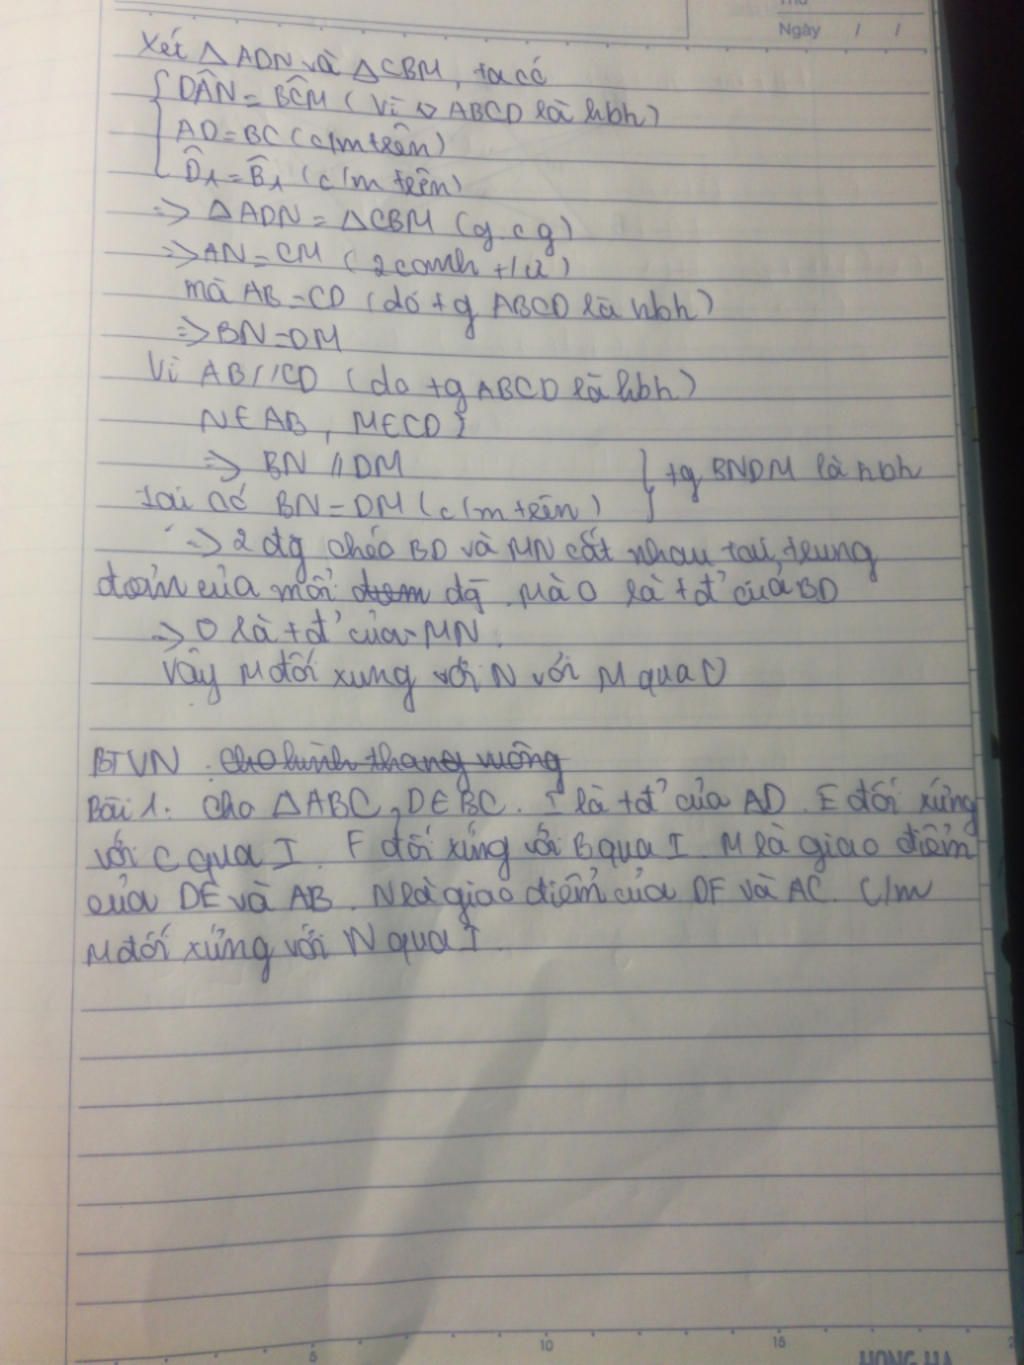 Thứ
Ngày / /
Xét △ADN và △CBM, ta có
{ DÂN = BĈM (Vì ▱ ABCD là hbh)
AD = BC (c/m trên)
D̂₁ = B̂₁ (c/m trên)
=> △ADN = △CBM (g.c.g)
=> AN = CM (2 cạnh t/ư)
mà AB = CD (do tg ABCD là hbh)
=> BN = DM
Vì AB // CD (do tg ABCD là hbh)
N ∈ AB, M ∈ CD }
=> BN // DM } tg BNDM là hbh
Lại có BN = DM (c/m trên)
=> 2 đg chéo BD và MN cắt nhau tại trung
điểm của mỗi đg. Mà O là tđ' của BD
=> O là tđ' của MN.
Vậy M đối xưng với N với M qua O
BTVN. cho hình thang vuông
Bài 1. Cho △ABC, D ∈ BC. I là tđ' của AD. E đối xứng
với C qua I. F đối xứng với B qua I. M là giao điểm
của DE và AB. N là giao điểm của DF và AC. C/m
M đối xứng với N qua I.
5 10 15
HONG HA